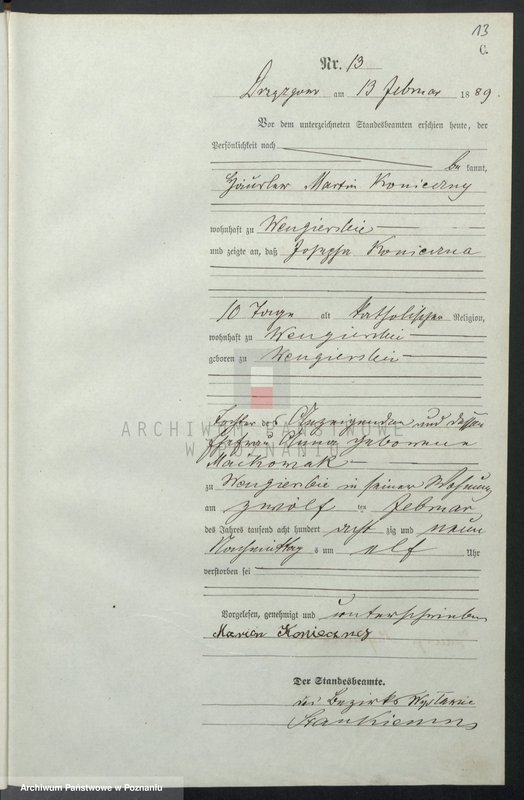 13
C.
Nr. 13
am 13 Februar 1889.
Vor dem unterzeichneten Standesbeamten erschien heute, der
Persönlichkeit nach
be kannt,
Häusler Martin Konieczny
wohnhaft zu Wengierskie
und zeigte an, daß Josepha Konieczna
10 Tage alt katholischer Religion,
wohnhaft zu Wengierskie
geboren zu Wengierskie
Tochter des Anzeigenden und dessen
Ehefrau Anna geborene
Mackowiak
zu Wengierskie in seiner Wohnung
am zwölf ten Februar
des Jahres tausend acht hundert acht zig und neun
Nachmittag s um elf Uhr
verstorben sei
Vorgelesen, genehmigt und unterschrieben
Konieczny
Der Standesbeamte.
des Bezirks
ARCHIWUM PAŃSTWOWE
W POZNANIU
Archiwum Państwowe w Poznaniu